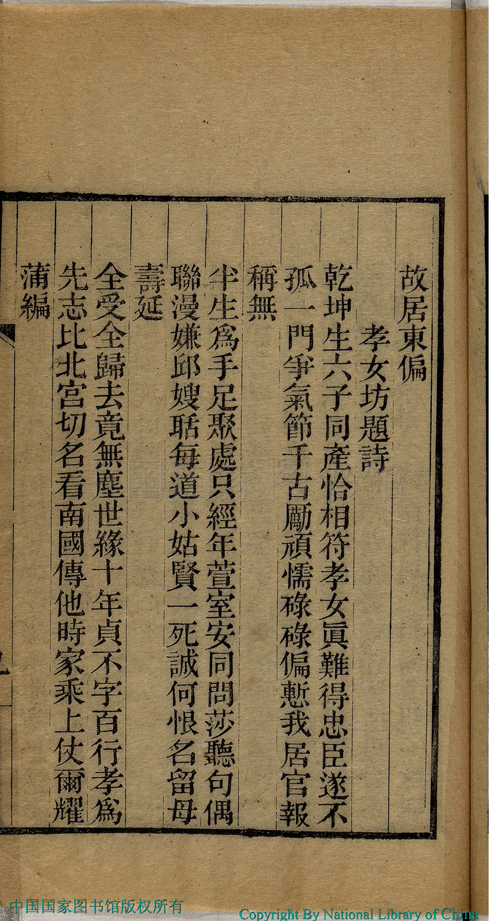 故居東偏
孝女坊題詩
乾坤生六子同產恰相符孝女眞難得忠臣遂不
孤一門爭氣節千古勵頑懦碌碌偏慙我居官報
稱無
半生爲手足聚處只經年萱室安同問莎聽句偶
聯漫嫌邱嫂聒每道小姑賢一死誠何恨名留母
壽延
全受全歸去竟無塵世緣十年貞不字百行孝爲
先志比北宮切名看南國傳他時家乘上仗爾耀
蒲編
中国国家图书馆版权所有
Copyright By National Library of China